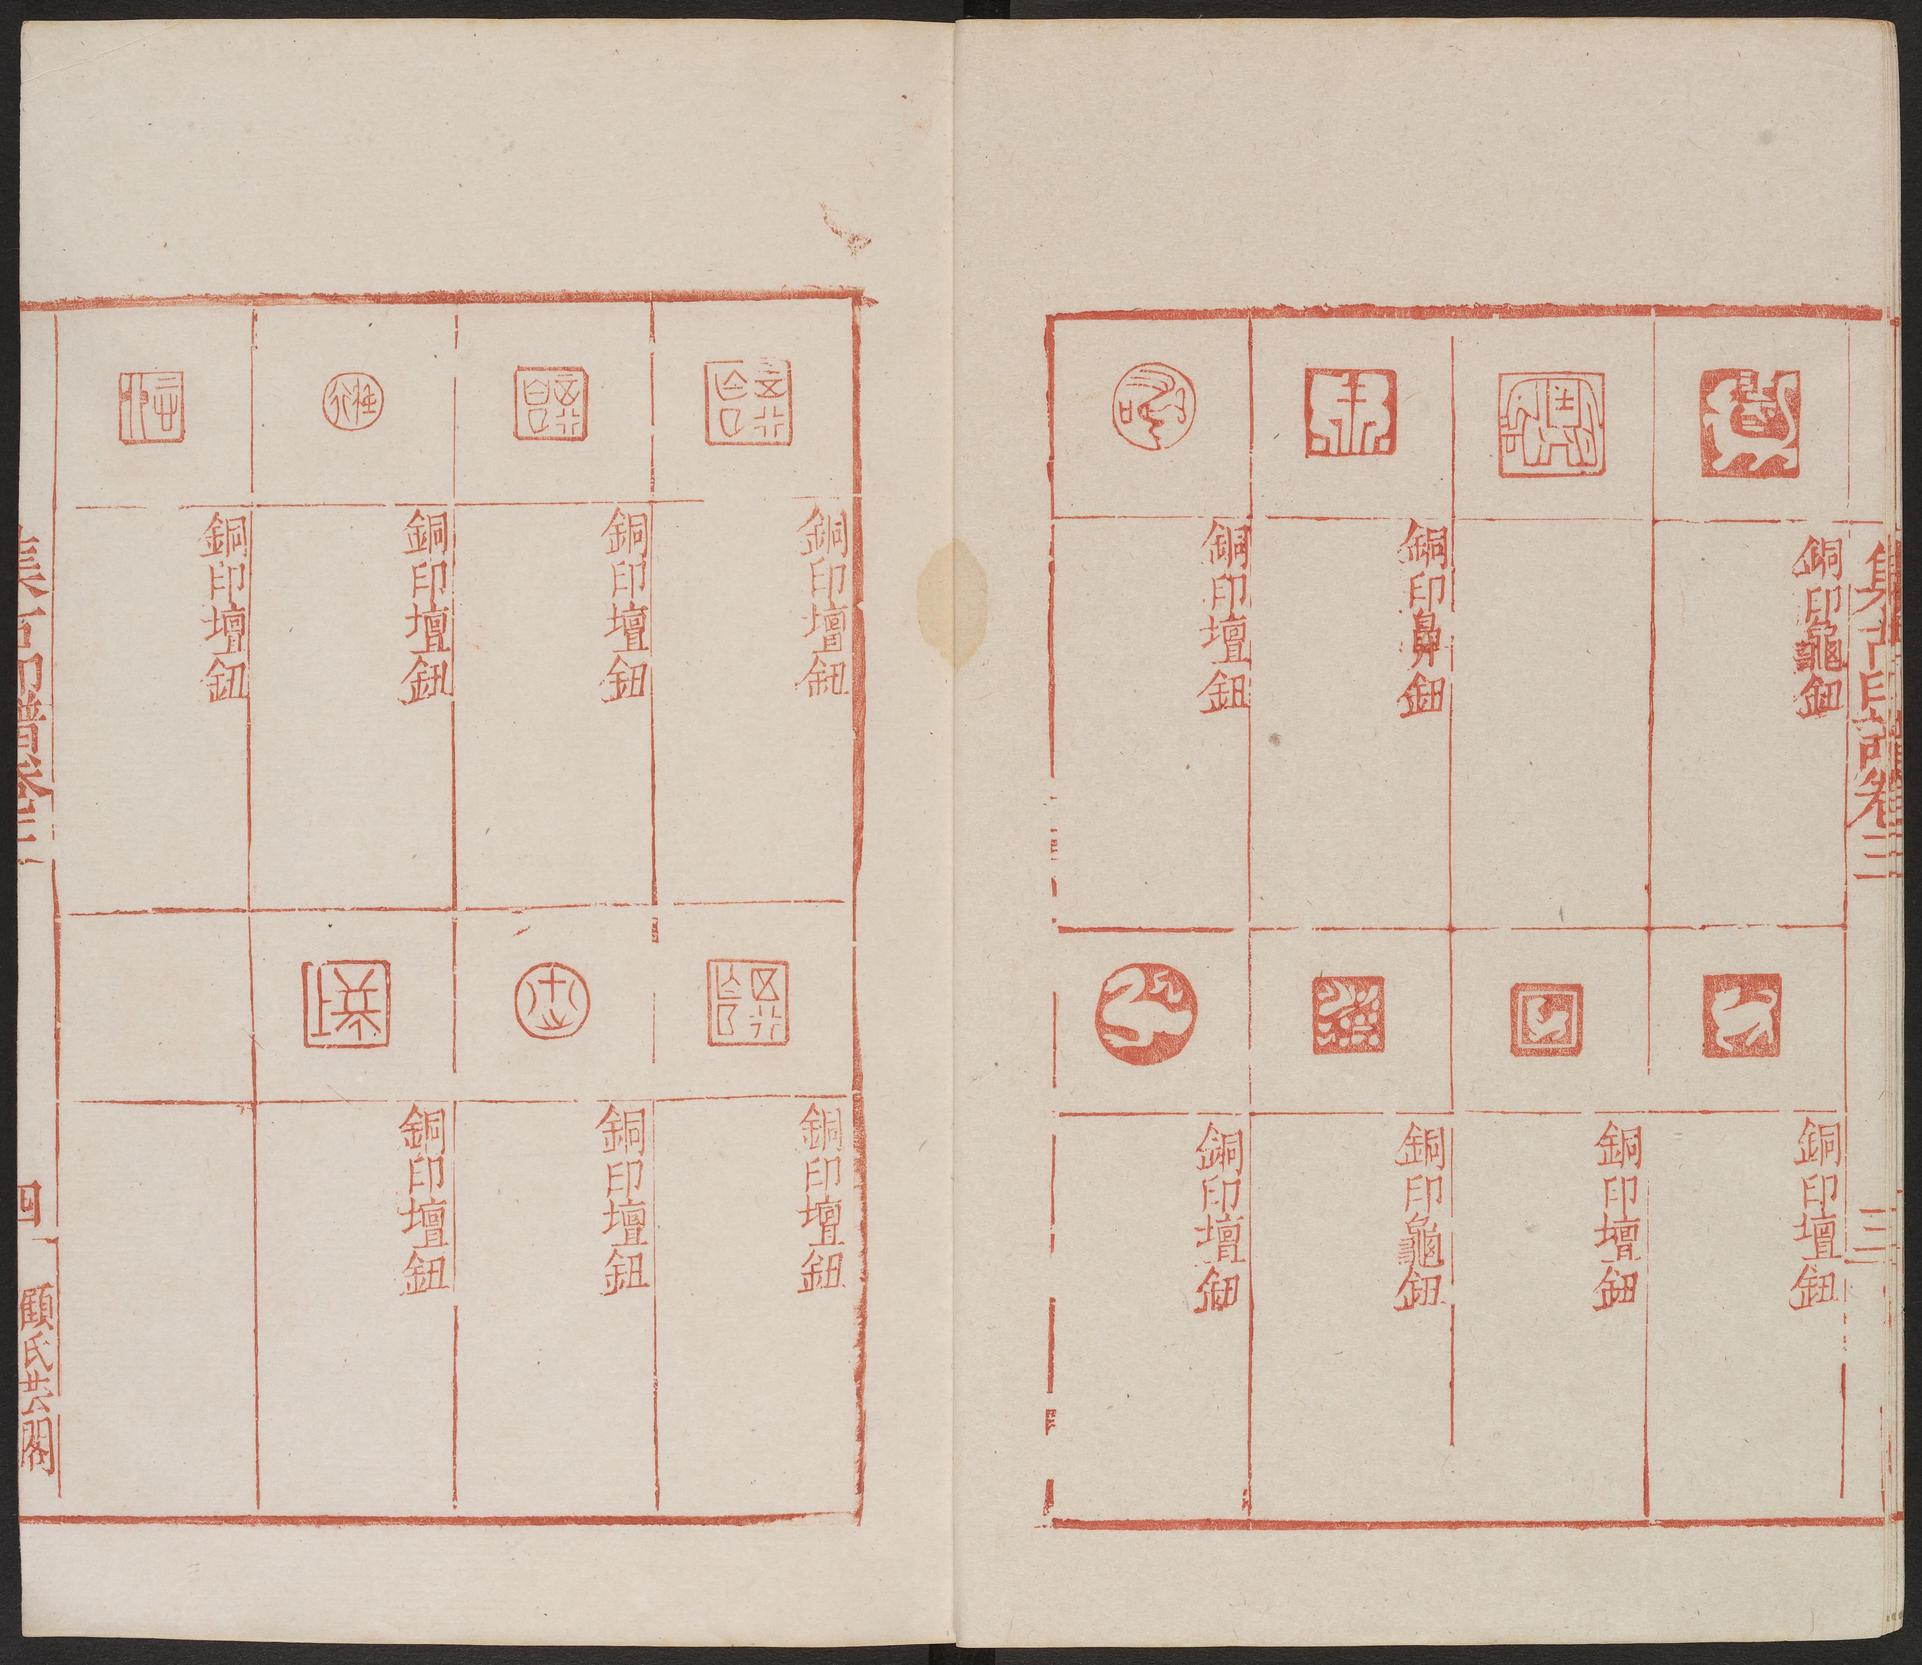 集古印譜卷三
三
銅印龜鈕
銅印鼻鈕
銅印壇鈕
銅印壇鈕
銅印壇鈕
銅印龜鈕
銅印壇鈕
銅印壇鈕
銅印壇鈕
銅印壇鈕
銅印壇鈕
銅印壇鈕
銅印壇鈕
銅印壇鈕
集古印譜卷三
四
顧氏芸閣